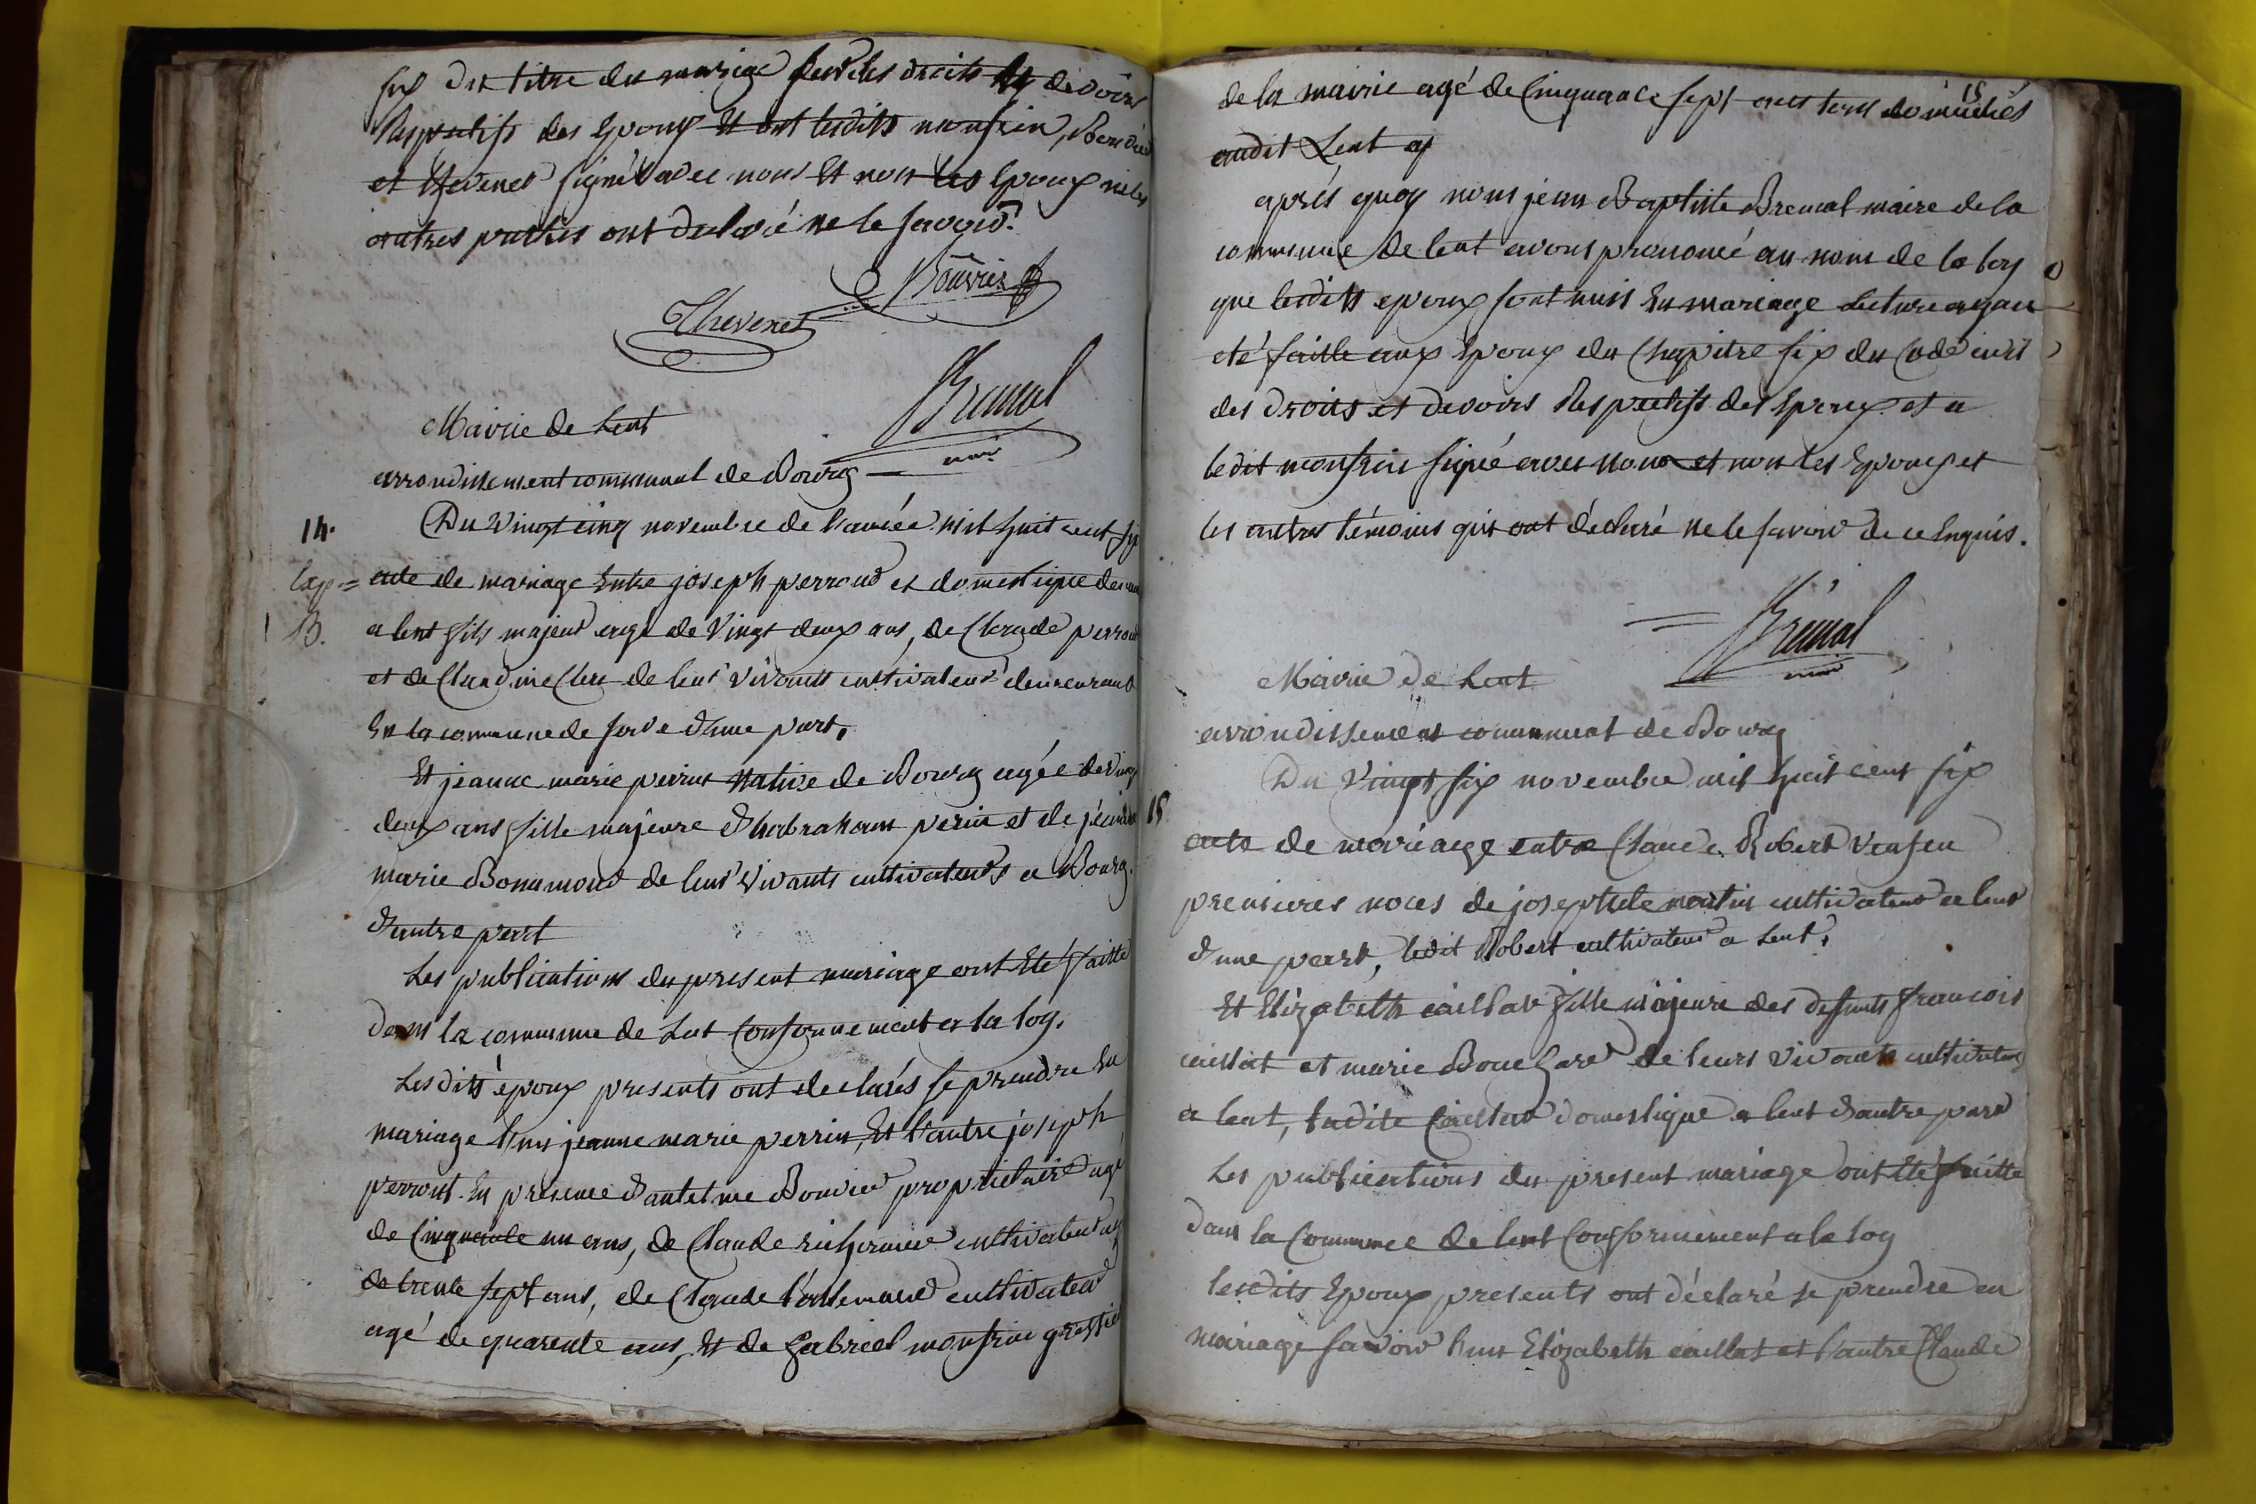 six du titre du mariage sur les droits et devoirs
Respectifs des Epoux Et ont lesdits monfrin, Bouvier
et thevenet signés avec nous Et non les Epoux ni les
autres parties ont declaré ne le savoir.
Bouvier
Thevenet
Bremal
maire
Mairie de Lent
arrondissement communal de Bourg
14.
Du Vingt cinq novembre de l'année mil huit cent six
acte de mariage Entre joseph perroud et domestique
B.
a lent fils majeur agé de Vingt deux ans, de Claude perroud
et de Claudine de leur vivants cultivateurs demeurant
En la commune de serve d'une part,
Et jeanne marie perrin Native de Bourg agée de Vingt
deux ans fille majeure d'habraham perin et de jeanne
marie Bonamour de leur Vivants cultivateurs a Bourg
d'autre part
Les publications du present mariage ont Eté faitte
dans la commune de Lent Conformement a la loy.
Lesdits époux presents ont declarés se prendre En
mariage l'un jeanne marie perrin, Et l'autre joseph
perrout. En presence d'antelme Bouvier proprietaire agé
de Cinquante un ans, de Claude cultivateur agé
de trente sept ans, de Claude l'allemand cultivateur
agé de quarente ans, Et de Gabriel monfrin greffier
15
de la mairie agé de Cinquante sept ans tous domiciliés
audit Lent
après quoy nous jean Baptiste Bremal maire de la
commune de lent avons prononcé au nom de la loy
que lesdits epoux sont unis En mariage Lecture ayan
eté faitte aux Epoux du Chapitre six du Code civil
des droits et devoirs Respectifs des Epoux et a
ledit monfrin signé avec nous et non les Epoux et
les autres témoins qui ont déclaré ne le savoir de ce Enquis.
Brémal
maire
Mairie de Lent
arrondissement communal de Bourg
15
Du Vingt six novembre mil huit cent six
acte de mariage entre Claude Robert
premieres noces de josephte cultivateur a lent
d'une part, ledit Robert cultivateur a Lent,
Et Elizabeth caillat fille majeure des defunts francois
caillat et marie Bouchard de leurs vivants cultivateurs
a lent, ladite Caillat domestique a lent d'autre part
Les publications du present mariage ont Eté faitte
dans la Commune de lent Conformement a la loy
lesdits Epoux presents ont déclaré se prendre en
mariage savoir l'un Elizabeth caillat et l'autre Claude